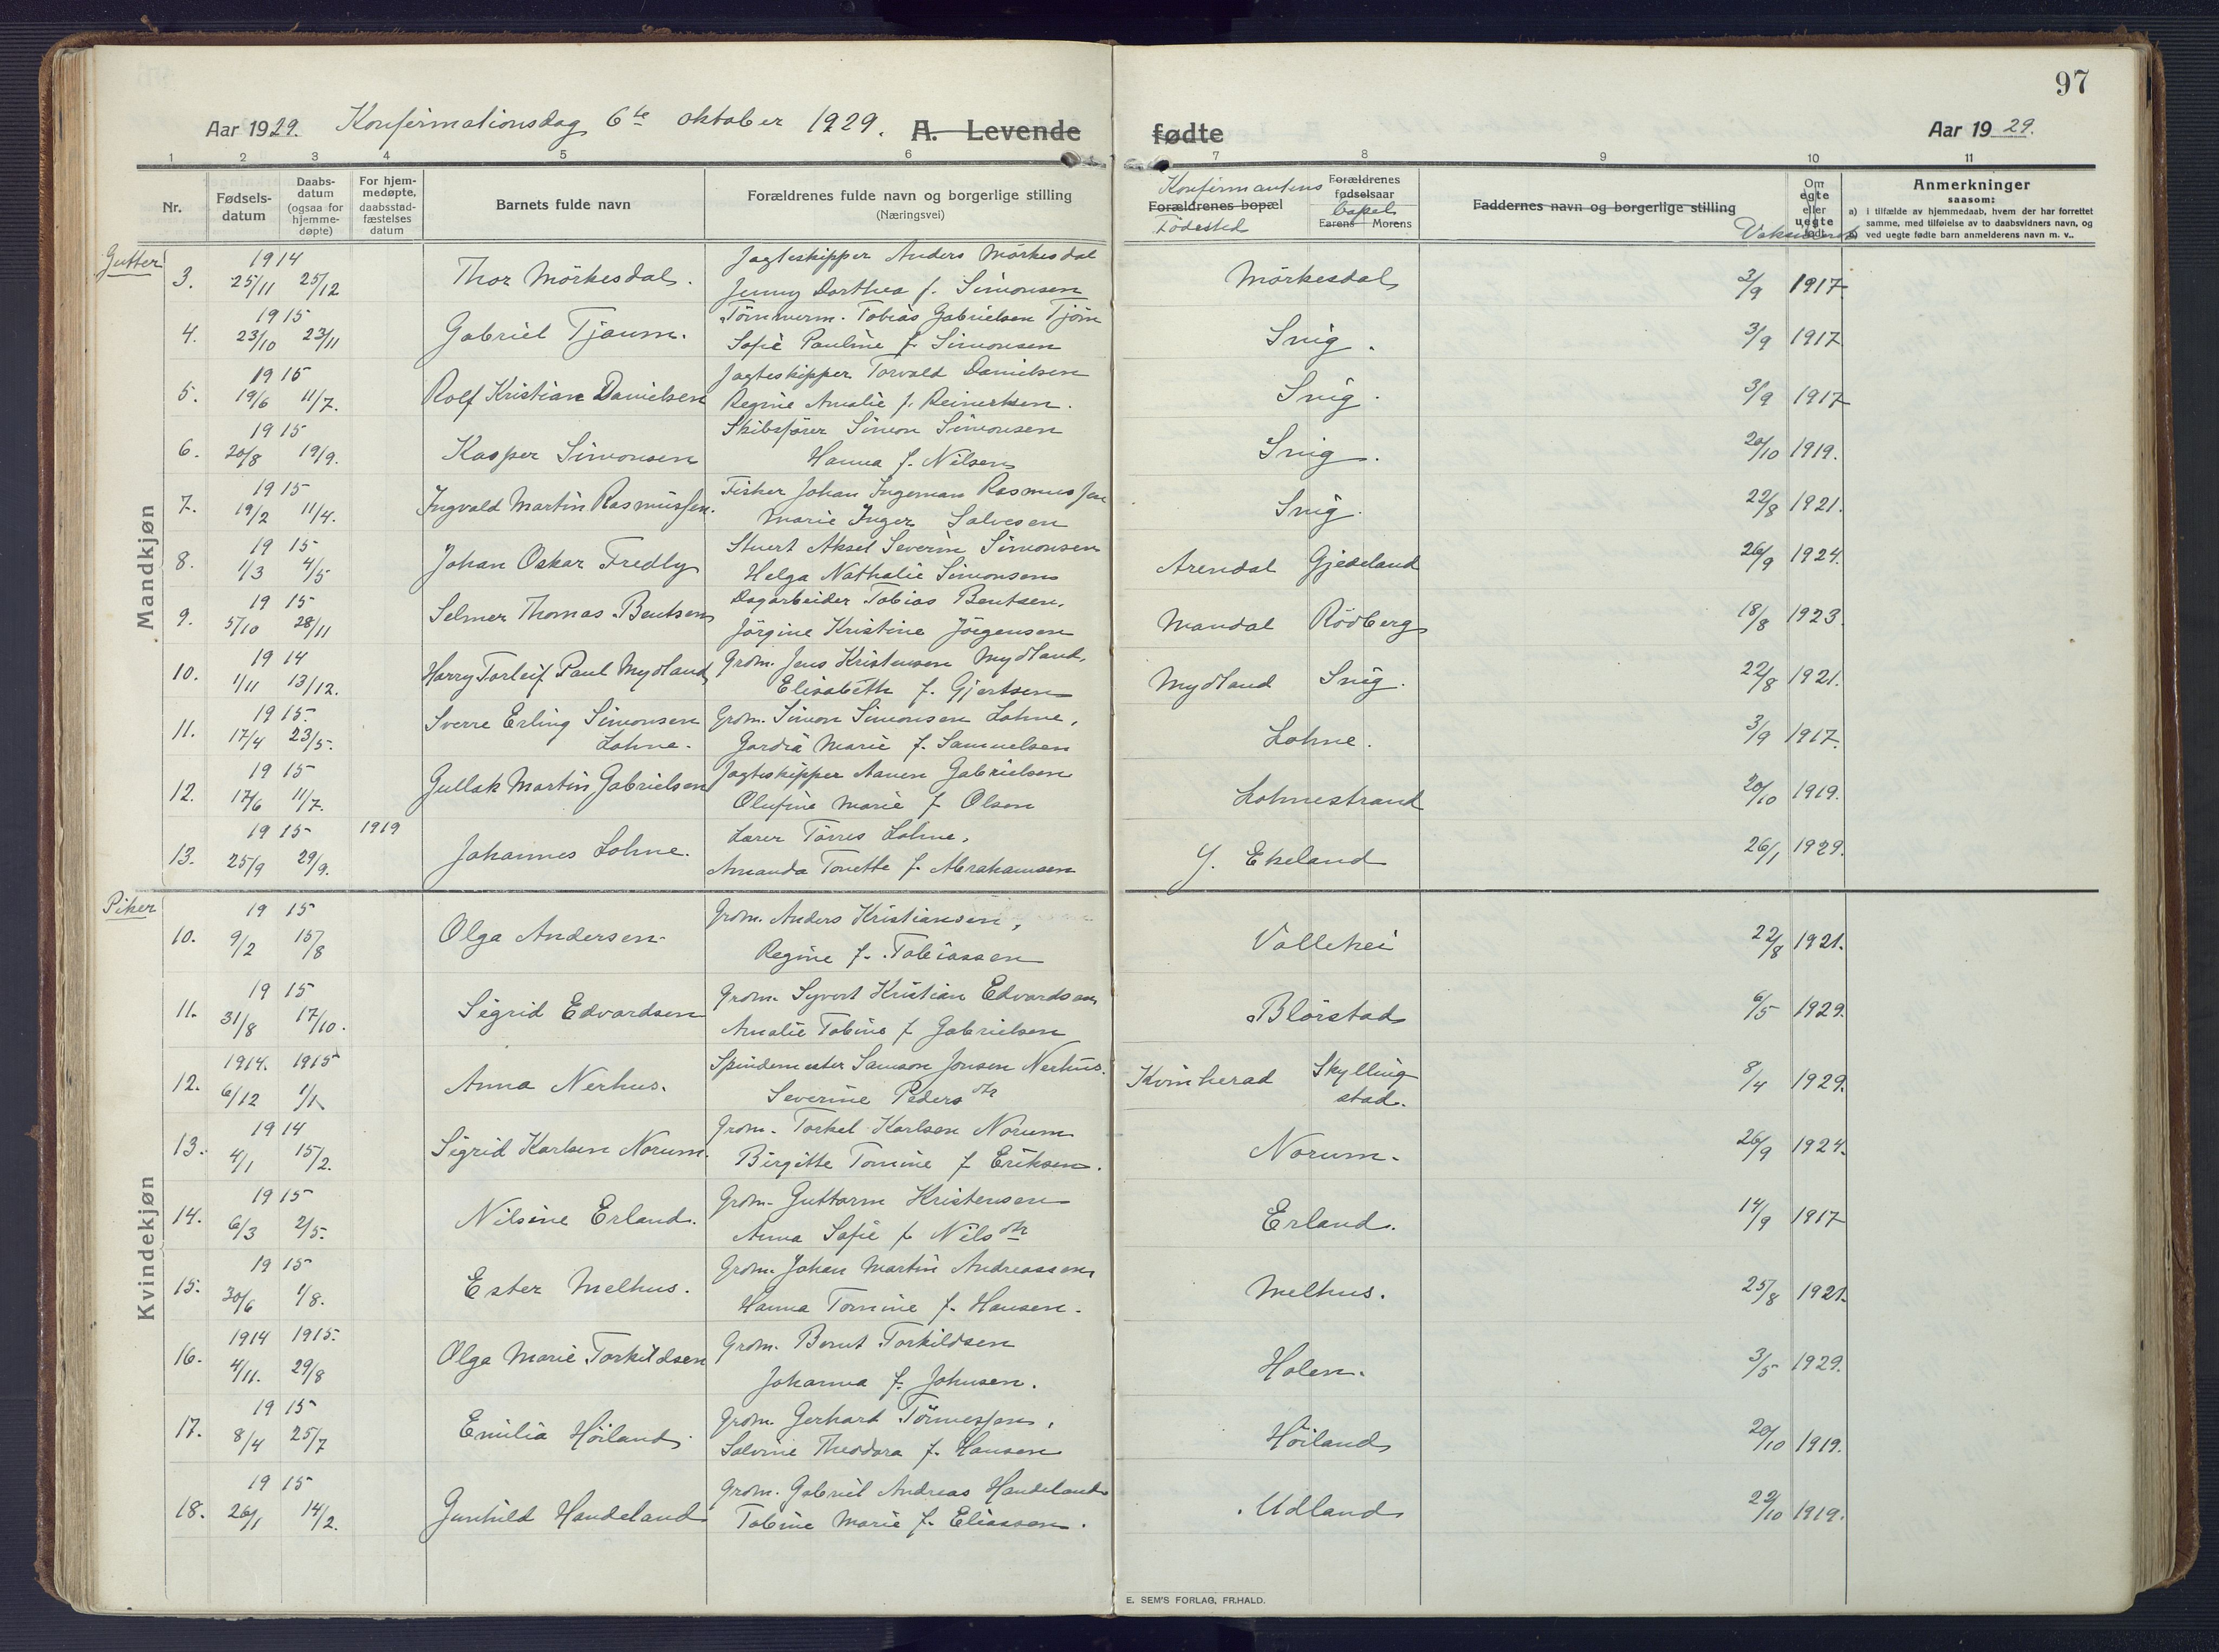 97
Aar 1929. Konfirmationsdag 6te oktober 1929. A. Levende fødte Aar 1929.
1 2 3 4 5 6 7 8 9 10 11
Nr.
Fødsels-datum
Daabs-datum (ogsaa for hjemme-døpte)
For hjem-medøpte, daabsstad-fæstelses datum
Barnets fulde navn
Forældrenes fulde navn og borgerlige stilling (Næringsvei)
Konfirmantens
Forældrenes bopæl
Fødested
Forældrenes fødselsaar
bopæl
Farens Morens
Faddernes navn og borgerlige stilling
Om egte eller uegte født
Anmerkninger
saasom:
a) i tilfælde av hjemmedaab, hvem der har forrettet samme, med tilføielse av to daabsvidners navn, og
ved uegte fødte barn anmelderens navn m. v..
Gutter
Mandkjøn
1914 Jagteskipper Anders Mörkesdal
3. 25/11 25/12 Thor Mörkesdal. Mörkesdal 3/9 1917.
Jenny Dorthea f. Simonsen
1915 Tömmerm. Tobias Gabrielsen Tjöm
4. 23/10 23/11 Gabriel Tjaum. Snig. 3/9 1917
Sofie Pauline f. Simonsen
1915 Jagteskipper Torvald Danielsen
5. 19/6 11/7. Rolf Kristian Danielsen Snig. 3/9 1917
Regine Amalie f. Reinertsen.
1915 Skibsfører Simon Simonsen
6. 20/8 19/9. Kasper Simonsen Snig. 20/10 1919.
Hanna f. Nilsen
1915 Fisker Johan Ingeman Rasmussen
7. 19/2 11/4. Ingvald Martin Rasmussen. Snig. 22/8 1921.
Marie Inger Salvesen
1915 Stuert Aksel Severin Simonsen
8. 1/3 4/5 Johan Oskar Fredly Arendal Gjedeland 26/9 1924.
Helga Nathalie Simonsen
1915 Dagarbeider Tobias Bentsen.
9. 5/10 28/11 Selmer Thomas Bentsen Mandal Rödberg 18/8 1923.
Jörgine Kristine Jörgensen
1914 Grdm. Jens Kristensen Mydland,
10. 1/11 13/12. Harry Torleif Paul Mydland Mydland Snig. 22/8 1921.
Elisabeth f. Gjertsen
1915. Sverre Erling Simonsen Grdm. Simon Simonsen Lohne,
11. 17/4 23/5. Lohne. Lohne. 3/9 1917.
Gardia Marie f. Samuelsen
1915 Jagteskipper Aanen Gabrielsen
12. 17/6 11/7. Gullak Martin Gabrielsen Lohnestrand 20/10 1919.
Olufine Marie f Olsen
1915 1919 Lærer Törres Lohne,
13. 25/9 29/9. Johannes Lohne. Y. Ekeland 26/1 1929.
Amanda Tonette f. Abrahamsen
Piker
Kvindekjøn
1915 Grdm. Anders Kristiansen,
10. 9/2 15/8 Olga Andersen Vollehei 22/8 1921.
Regine f. Tobiassen
1915 Grdm. Syvert Kristian Edvardsen
11. 31/8 17/10. Sigrid Edvardsen Blörstad 6/5 1929.
Amalie Tobine f Gabrielsen
1914. 1915 Spindemester Samson Jonsen Nerhus.
12. 6/12 1/1 Anna Nerhus. Kvinherad Skylling 8/4 1929.
Severine Pedersdtr stad.
1914 Grdm. Torkel Karlsen Norum
13. 4/1 15/2. Sigrid Karlsen Norum. Norum. 26/9 1924.
Birgitte Tomine f Eriksen.
1915 Grdm. Guttorm Kristensen
14. 6/3 2/5. Nilsine Erland. Erland. 14/9 1917
Anna Sofie f Nilsdtr
1915 Grdm. Johan Martin Andreassen
15. 30/6 1/8. Ester Melhus. Melhus. 25/8 1921.
Hanna Tomine f. Hansen.
1914 1915. Grdm. Berut Torkildsen
16. 4/11. 29/8 Olga Marie Torkildsen Holen. 3/5 1929.
Johanna f. Johnsen.
1915 Grdm. Gerhard Tönnessen,
17. 8/4 25/7 Emilia Höiland. Höiland 20/10 1919.
Salvine Theodora f. Hansen
1915 Grdm. Gabriel Andreas Handeland
18. 26/1 14/2. Gunhild Handeland Udland 22/10 1919.
Tobine Marie f. Eliassen.
E. SEM'S FORLAG, FR.HALD.